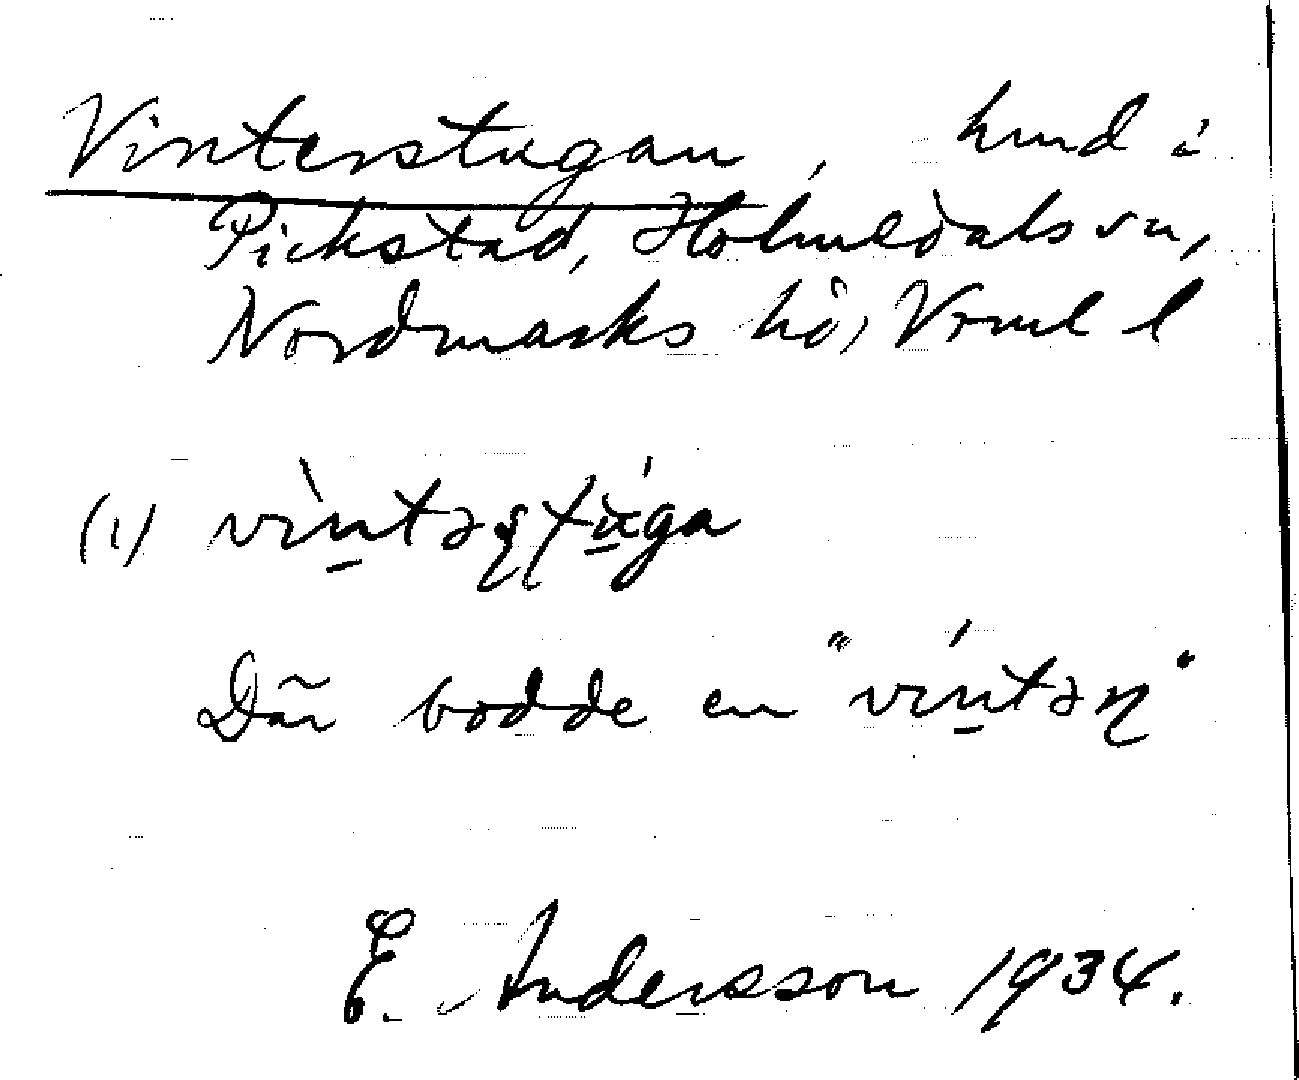 Vinterstugan, hmd i
Pickstad, Holmedals sn,
Nordmarks hd, Vrml l
(1) vìntəʂtúga
Där bodde en "víntəɳ"
E. Andersson 1934.